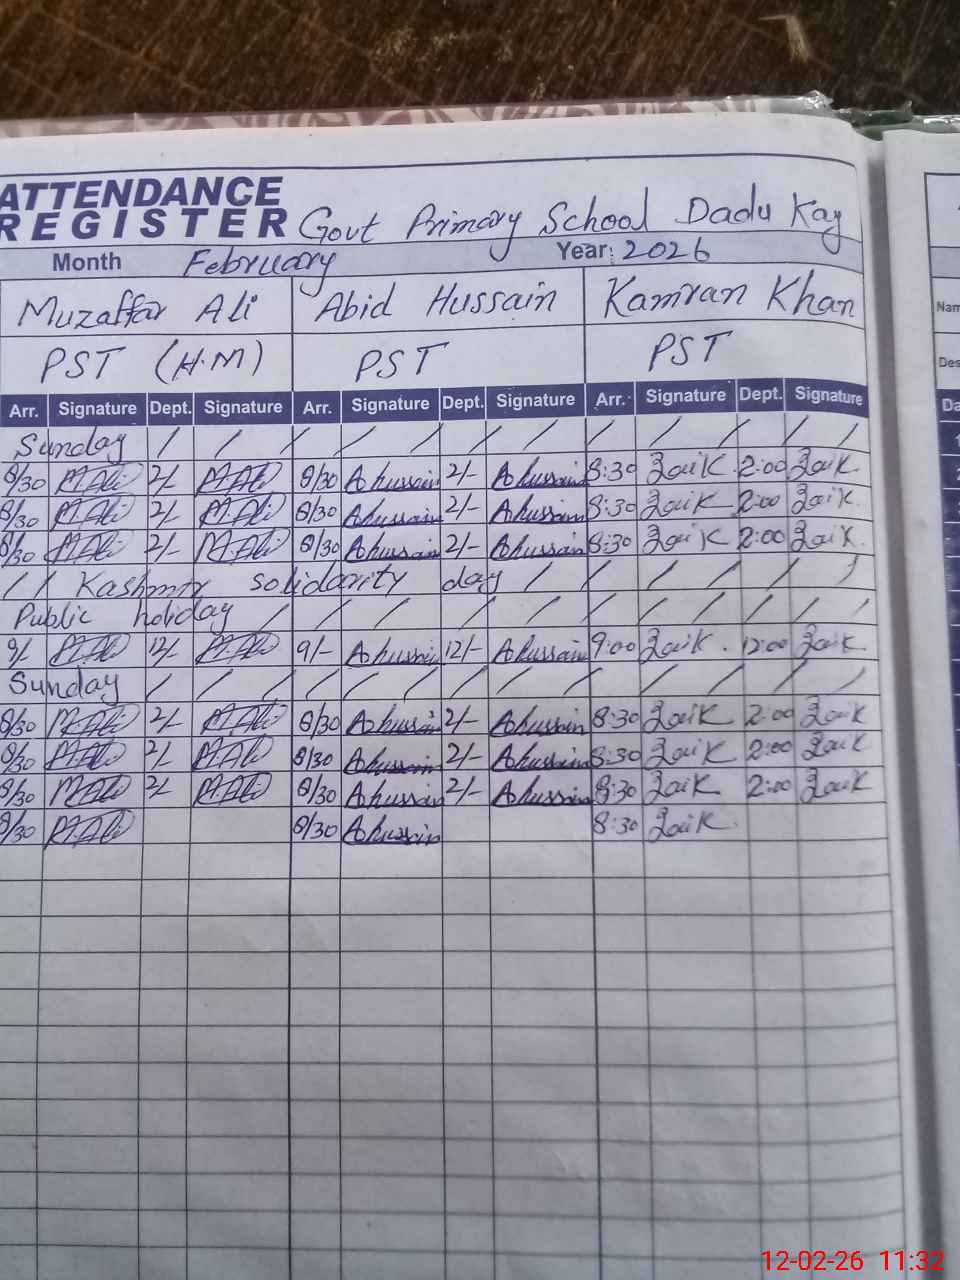 ATTENDANCE
REGISTER Govt Primary School Dadu Kay
Month February Year: 2026
Muzaffar Ali Abid Hussain Kamran Khan
PST (H.M) PST PST
Arr. Signature Dept. Signature Arr. Signature Dept. Signature Arr. Signature Dept. Signature
Sunday / / / / / / / / / / /
8/30 M.Ali 2/- M.Ali 8/30 Ahussain 2/- Ahussain 8:30 2:00
8/30 M.Ali 2/- M.Ali 8/30 Ahussain 2/- Ahussain 8:30 2:00
8/30 M.Ali 2/- M.Ali 8/30 Ahussain 2/- Ahussain 8:30 2:00
/ / Kashmir solidarity day / / / / / /
Public holiday / / / / / / / / / /
9/- M.Ali 12/- M.Ali 9/- Ahussain 12/- Ahussain 9:00 12:00
Sunday / / / / / / / / / / /
8/30 M.Ali 2/- M.Ali 8/30 Ahussain 2/- Ahussain 8:30 2:00
8/30 M.Ali 2/- M.Ali 8/30 Ahussain 2/- Ahussain 8:30 2:00
8/30 M.Ali 2/- M.Ali 8/30 Ahussain 2/- Ahussain 8:30 2:00
8/30 M.Ali 8/30 Ahussain 8:30
Nam
Des
Da
12-02-26 11:32